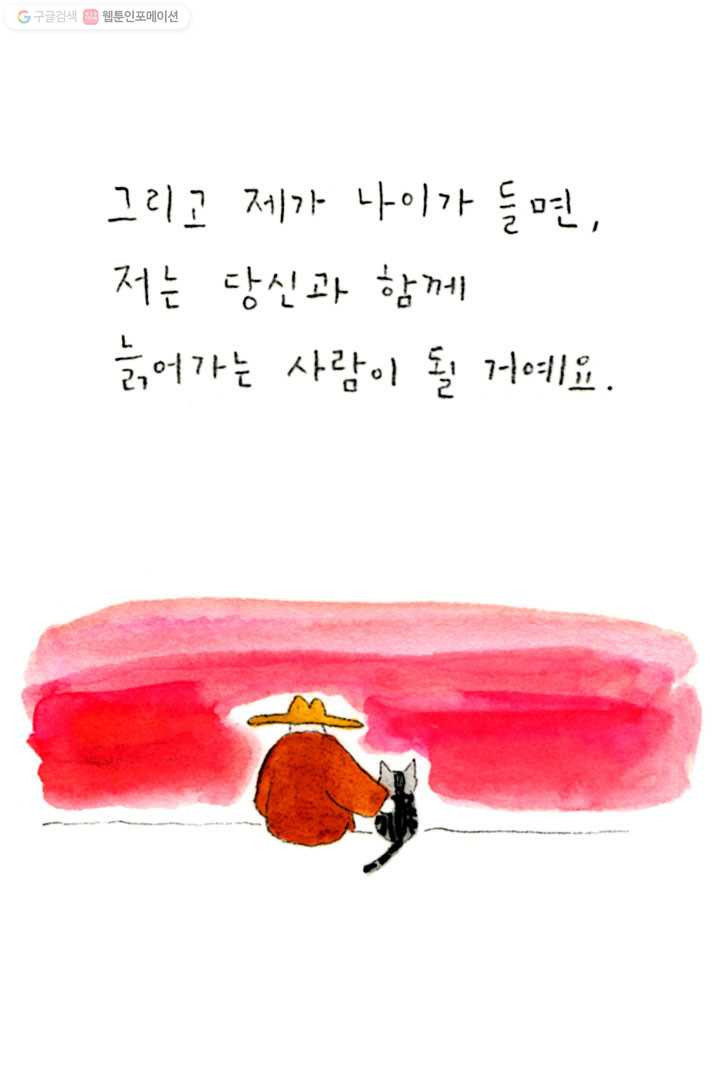 구글검색 웹툰인포메이션
그리고 제가 나이가 들면,
저는 당신과 함께
늙어가는 사람이 될 거예요.